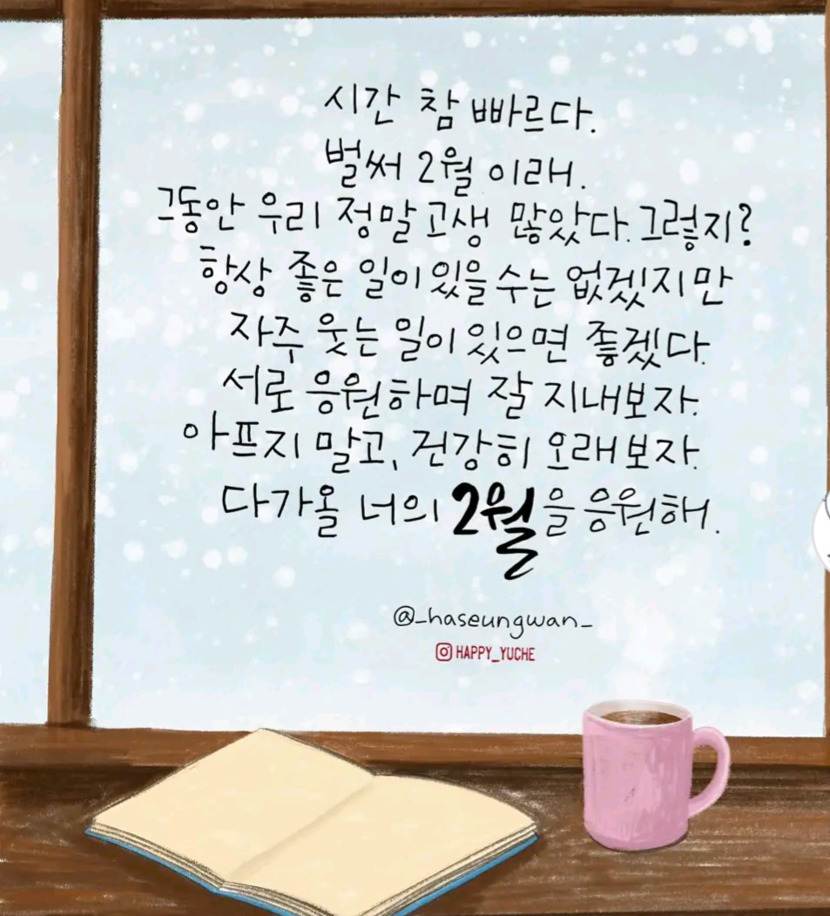 시간 참 빠르다.
벌써 2월 이래.
그동안 우리 정말 고생 많았다. 그렇지?
항상 좋은 일이 있을 수는 없겠지만
자주 웃는 일이 있으면 좋겠다.
서로 응원하며 잘 지내보자.
아프지 말고, 건강히 오래 보자.
다가올 너의 2월을 응원해.
@_haseungwan_
HAPPY_YUCHE